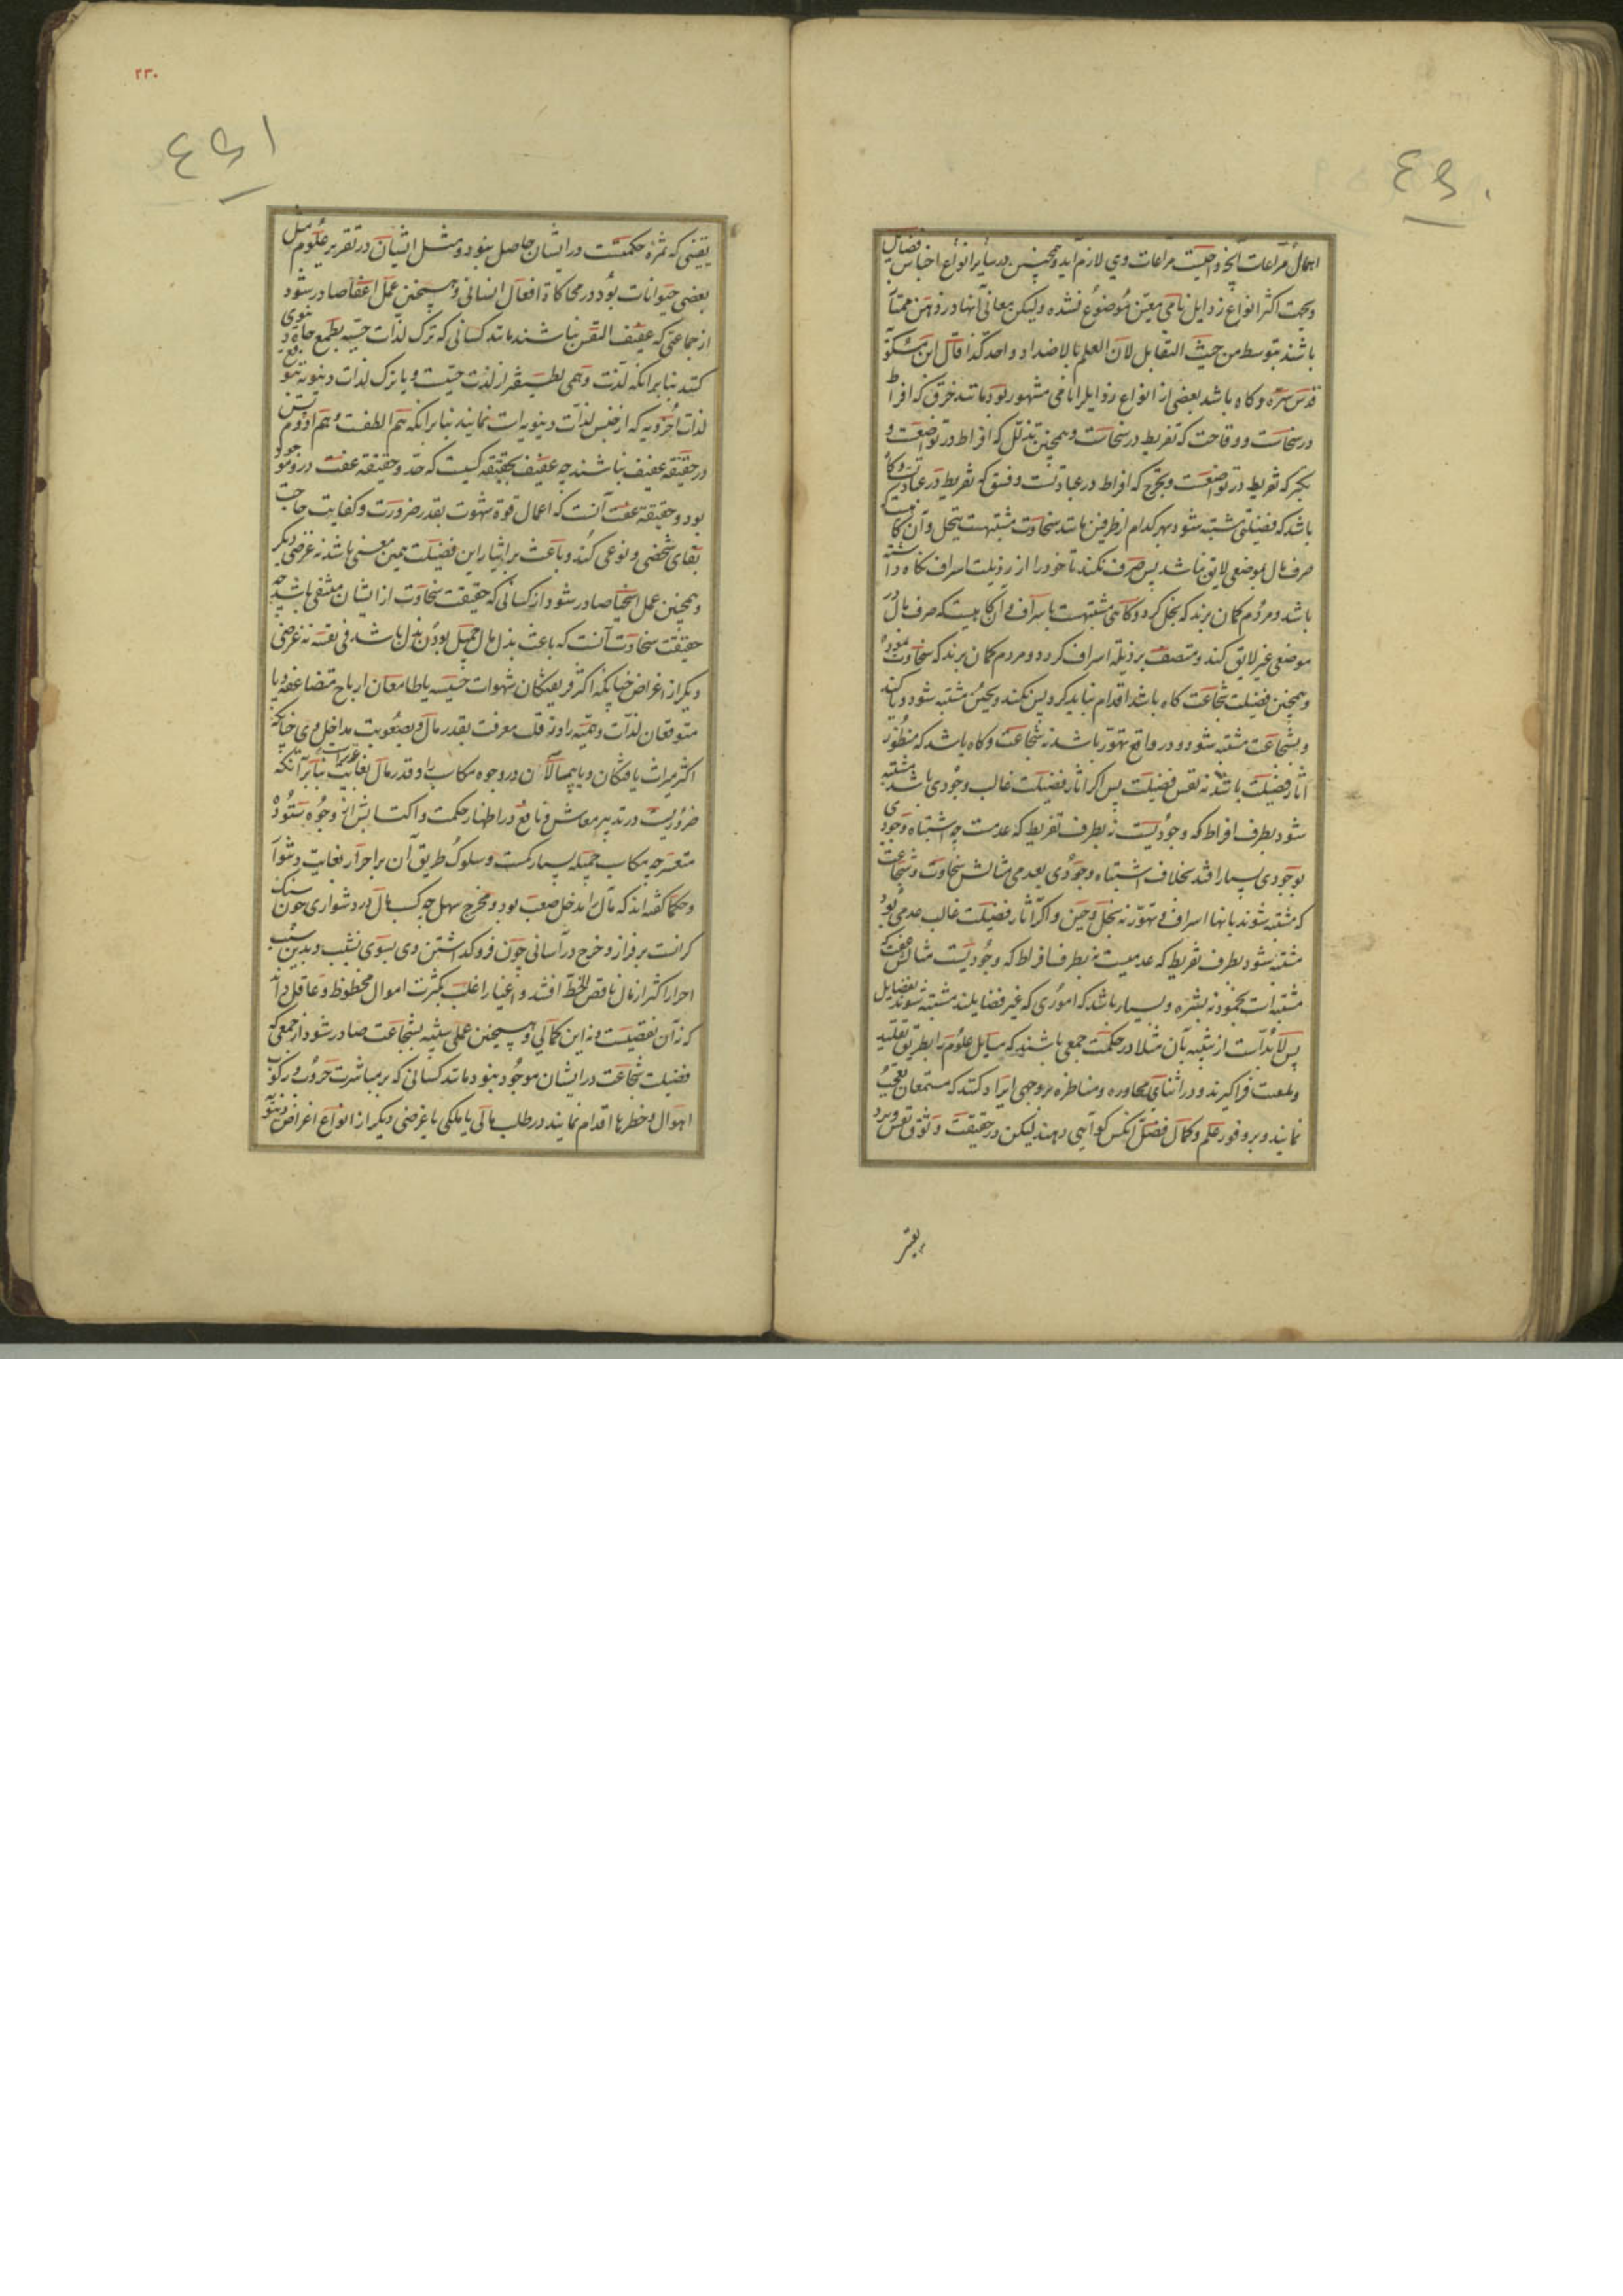 اهمال مراعات آنچه واجبست مراعات وی لازم آید و همچنین در سایر انواع اجناس فضایل
و بجهت اکثر انواع رذایل نامی معین موضوع نشده ولیکن معانی آنها در ذهن ممتاز
باشند بتوسط من حیث التقابل لان العلم بالاضداد واحد کذا قال ابن مسکویه
قدس سره و کاه باشد بعضی از انواع رذایل را نامی مشهور بود مانند خرق که افراط
در سخاست و وقاحت که تفریط در سخاست و همچنین تذلل که افراط در تواضعست و
تکبر که تفریط در تواضعست و تحرج که افراط در عبادتست و فسق که تفریط در عبادتست و کاه
باشد که فضیلتی مشتبه شود بهر کدام از طرفین مانند سخاوت مشتبهست ببخل و آن کاهیست که
صرف مال بموضعی لایق نباشد پس صرف نکند تا خود را از رذیلت اسراف نکاه داشته
باشد و مردم کمان برند که بخل کرد و کاهی مشتبهست باسراف و آن کاهیست که صرف مال در
موضعی غیر لایق کند و متصف برذیله اسراف کردد و مردم کمان برند که سخاوت نموده
و همچنین فضیلت شجاعت کاه باشد اقدام نباید کرد پس نکند و بجبن مشتبه شود و یا کند
و بشجاعت مشتبه شود و در واقع تهور باشد نه شجاعت و کاه باشد که منظور
آثار فضیلت باشد نه نفس فضیلت پس اکر آثار فضیلت غالب وجودی باشد مشتبه
شود بطرف افراط که وجودیست نه بطرف تفریط که عدمست چه اشتباه وجودی
بوجودی بسیار افتد بخلاف اشتباه وجودی بعدمی مثالش سخاوت و شجاعت
که مشتبه شوند بانها اسراف و تهور نه بخل و جبن و اکر آثار فضیلت غالب عدمی بود
مشتبه شود بطرف تفریط که عدمیست نه بطرف افراط که وجودیست مثالش عفت که
مشتبه است بخمود نه بشره و بسیار باشد که اموری که غیر فضایلند مشتبه شوند بفضایل
پس لابد است از تنبیه بآن مثلا در حکمت جمعی باشند که مسایل علوم را بطریق تقلید
و فراکیرند و در اثنای محاوره و مناظره بر وجهی ایراد کنند که مستمعان تعجب
نمایند و بر وفور علم و کمال فضل انکس کواهی دهند لیکن در حقیقت وثوق نفس و برد
یقینی که ثمره حکمتست در ایشان حاصل نبود و مثل ایشان در تقریر علوم مثل
بعضی حیوانات بود در محاکاة افعال انسانی و همچنین عمل اعفا صادر شود
از جماعتی که عفیف النفس نباشند مانند کسانی که ترک لذات حسیه بطمع جاه دنیوی
کنند بنابر انکه لذت وهمی لطیفتر از لذت حسیست و یا ترک لذات دنیویه بتوقع
لذات اخرویه که از جنس لذات دنیویه است نمایند بنابر انکه هم الطفست و هم ادوم پس
در حقیقة عفیف نباشند چه عفیف بحقیقة کسیست که حد و حقیقة عفت در و موجود
بود و حقیقة عفت آنست که اعمال قوة شهوت بقدر ضرورت و کفایت حاجت
بقای شخصی و نوعی کند و باعث بر ایثار این فضیلت همین معنی باشد نه غرضی دیکر
و همچنین عمل اسخیا صادر شود از کسانی که حقیقت سخاوت از ایشان منتفی باشد چه
حقیقت سخاوت آنست که باعث بذل مال جمیل بودن بذل باشد فی نفسه نه غرضی
دیکر از اغراض چنانکه اکثر فریفتکان شهوات خسیسه یا طامعان ارباح متضاعفه و یا
متوقعان لذات وهمیه را و نه قلت معرفت بقدر مال و بصعوبت مداخل وی چنانکه
اکثر میراث یافتکان و یا بیمبالاتان در وجوه مکاسب را و قدر مال بغایت عزیز است بنابر آنکه
ضروریست در تدبیر معاش و نافع در اظهار حکمت و اکتسابش از وجوه ستوده
متعسر چه مکاسب جمیله بسیار کمست و سلوک طریق آن بر احرار بغایت دشوار
و حکما کفته اند که مال را مدخل صعب بود و مخرج سهل چه کسب مال در دشواری چون سنک
کرانست بر فراز و خرج در آسانی چون فروکذاشتن وی بسوی نشیب و بدین سبب
احرار اکثر از مال ناقص الحظ افتند و اغنیا را اغلب بکثرت اموال محظوظ و عاقل داند
که نه آن نقصیست و نه این کمالی و همچنین عملی شبیه بشجاعت صادر شود از جمعی که
فضیلت شجاعت در ایشان موجود نبود مانند کسانی که بر مباشرت حروب و رکوب
اهوال و خطرها اقدام نمایند در طلب مالی یا ملکی یا غرضی دیکر از انواع اغراض دنیویه
۲۳۰